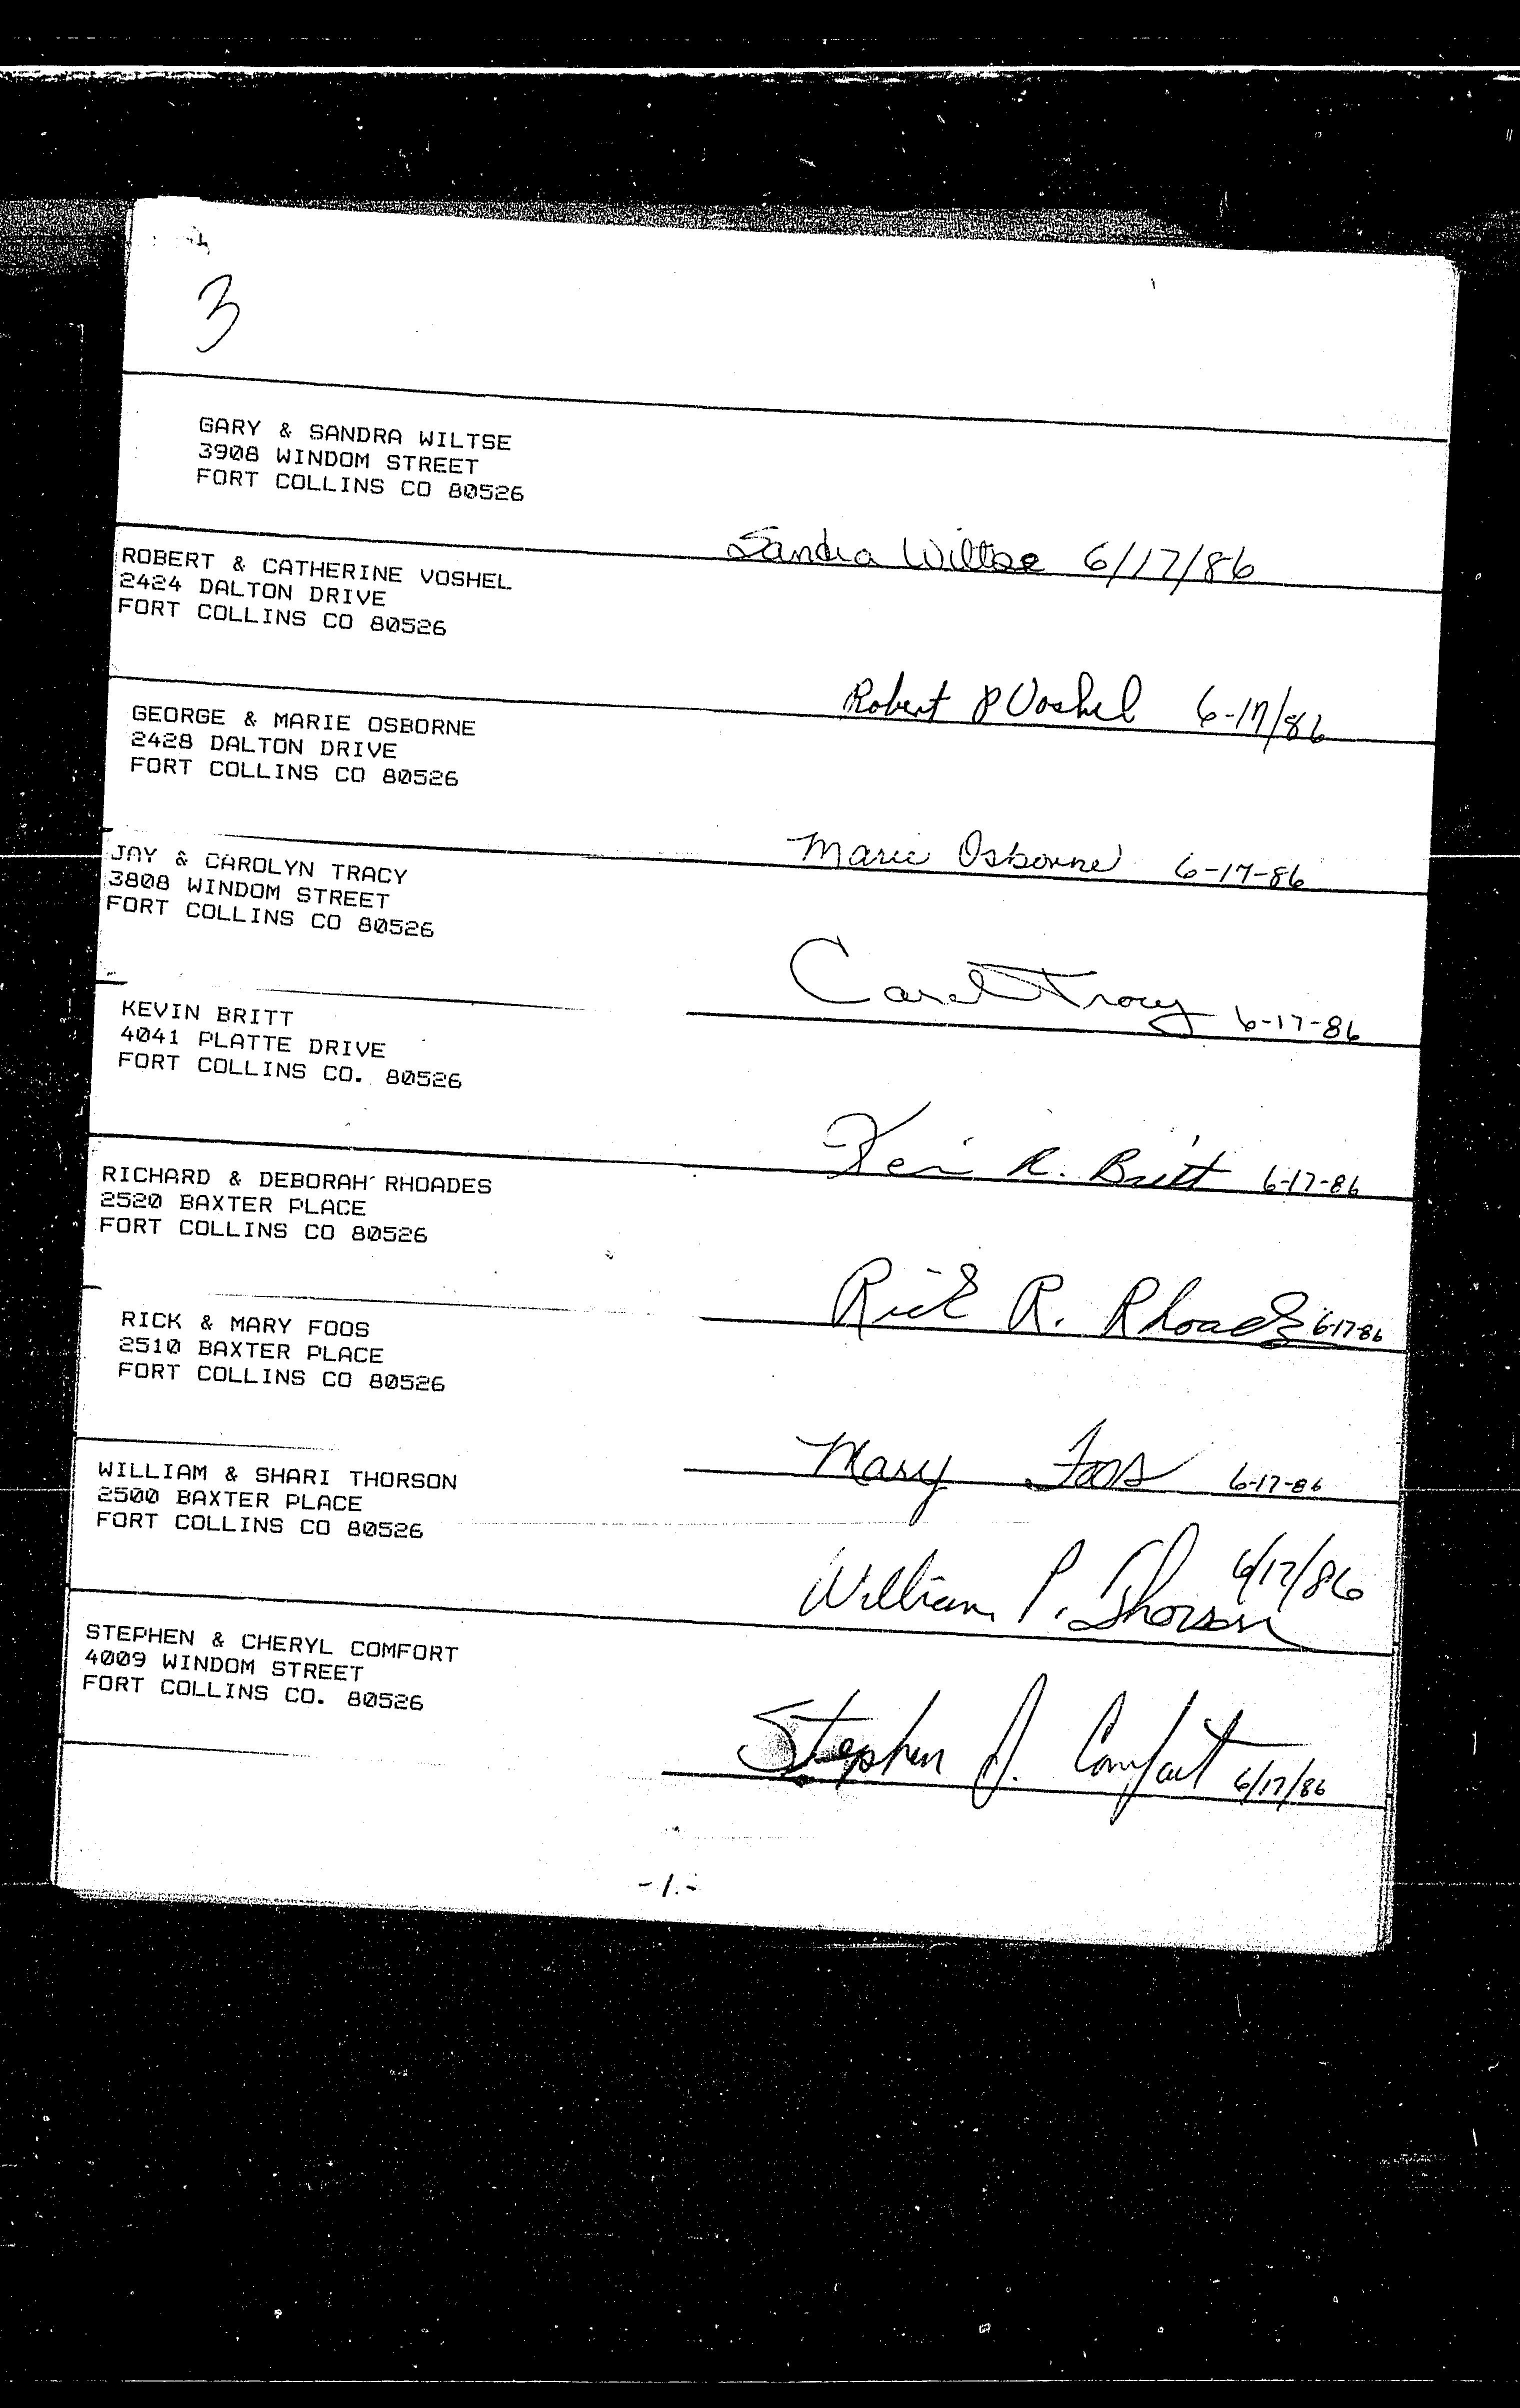 3
GARY & SANDRA WILTSE
3908 WINDOM STREET
FORT COLLINS CO 80526
Sandra Wiltse 6/17/86
ROBERT & CATHERINE VOSHEL
2424 DALTON DRIVE
FORT COLLINS CO 80526
Robert P Voshel 6-17/86
GEORGE & MARIE OSBORNE
2428 DALTON DRIVE
FORT COLLINS CO 80526
Marie Osborne 6-17-86
JAY & CAROLYN TRACY
3808 WINDOM STREET
FORT COLLINS CO 80526
Carol Tracy 6-17-86
KEVIN BRITT
4041 PLATTE DRIVE
FORT COLLINS CO. 80526
Kevin R. Britt 6-17-86
RICHARD & DEBORAH RHOADES
2520 BAXTER PLACE
FORT COLLINS CO 80526
Rick R. Rhoades 6-17-86
RICK & MARY FOOS
2510 BAXTER PLACE
FORT COLLINS CO 80526
Mary Foos 6-17-86
WILLIAM & SHARI THORSON
2500 BAXTER PLACE
FORT COLLINS CO 80526
William P. Thorson 6/17/86
STEPHEN & CHERYL COMFORT
4009 WINDOM STREET
FORT COLLINS CO. 80526
Stephen J. Comfort 6/17/86
-1.-